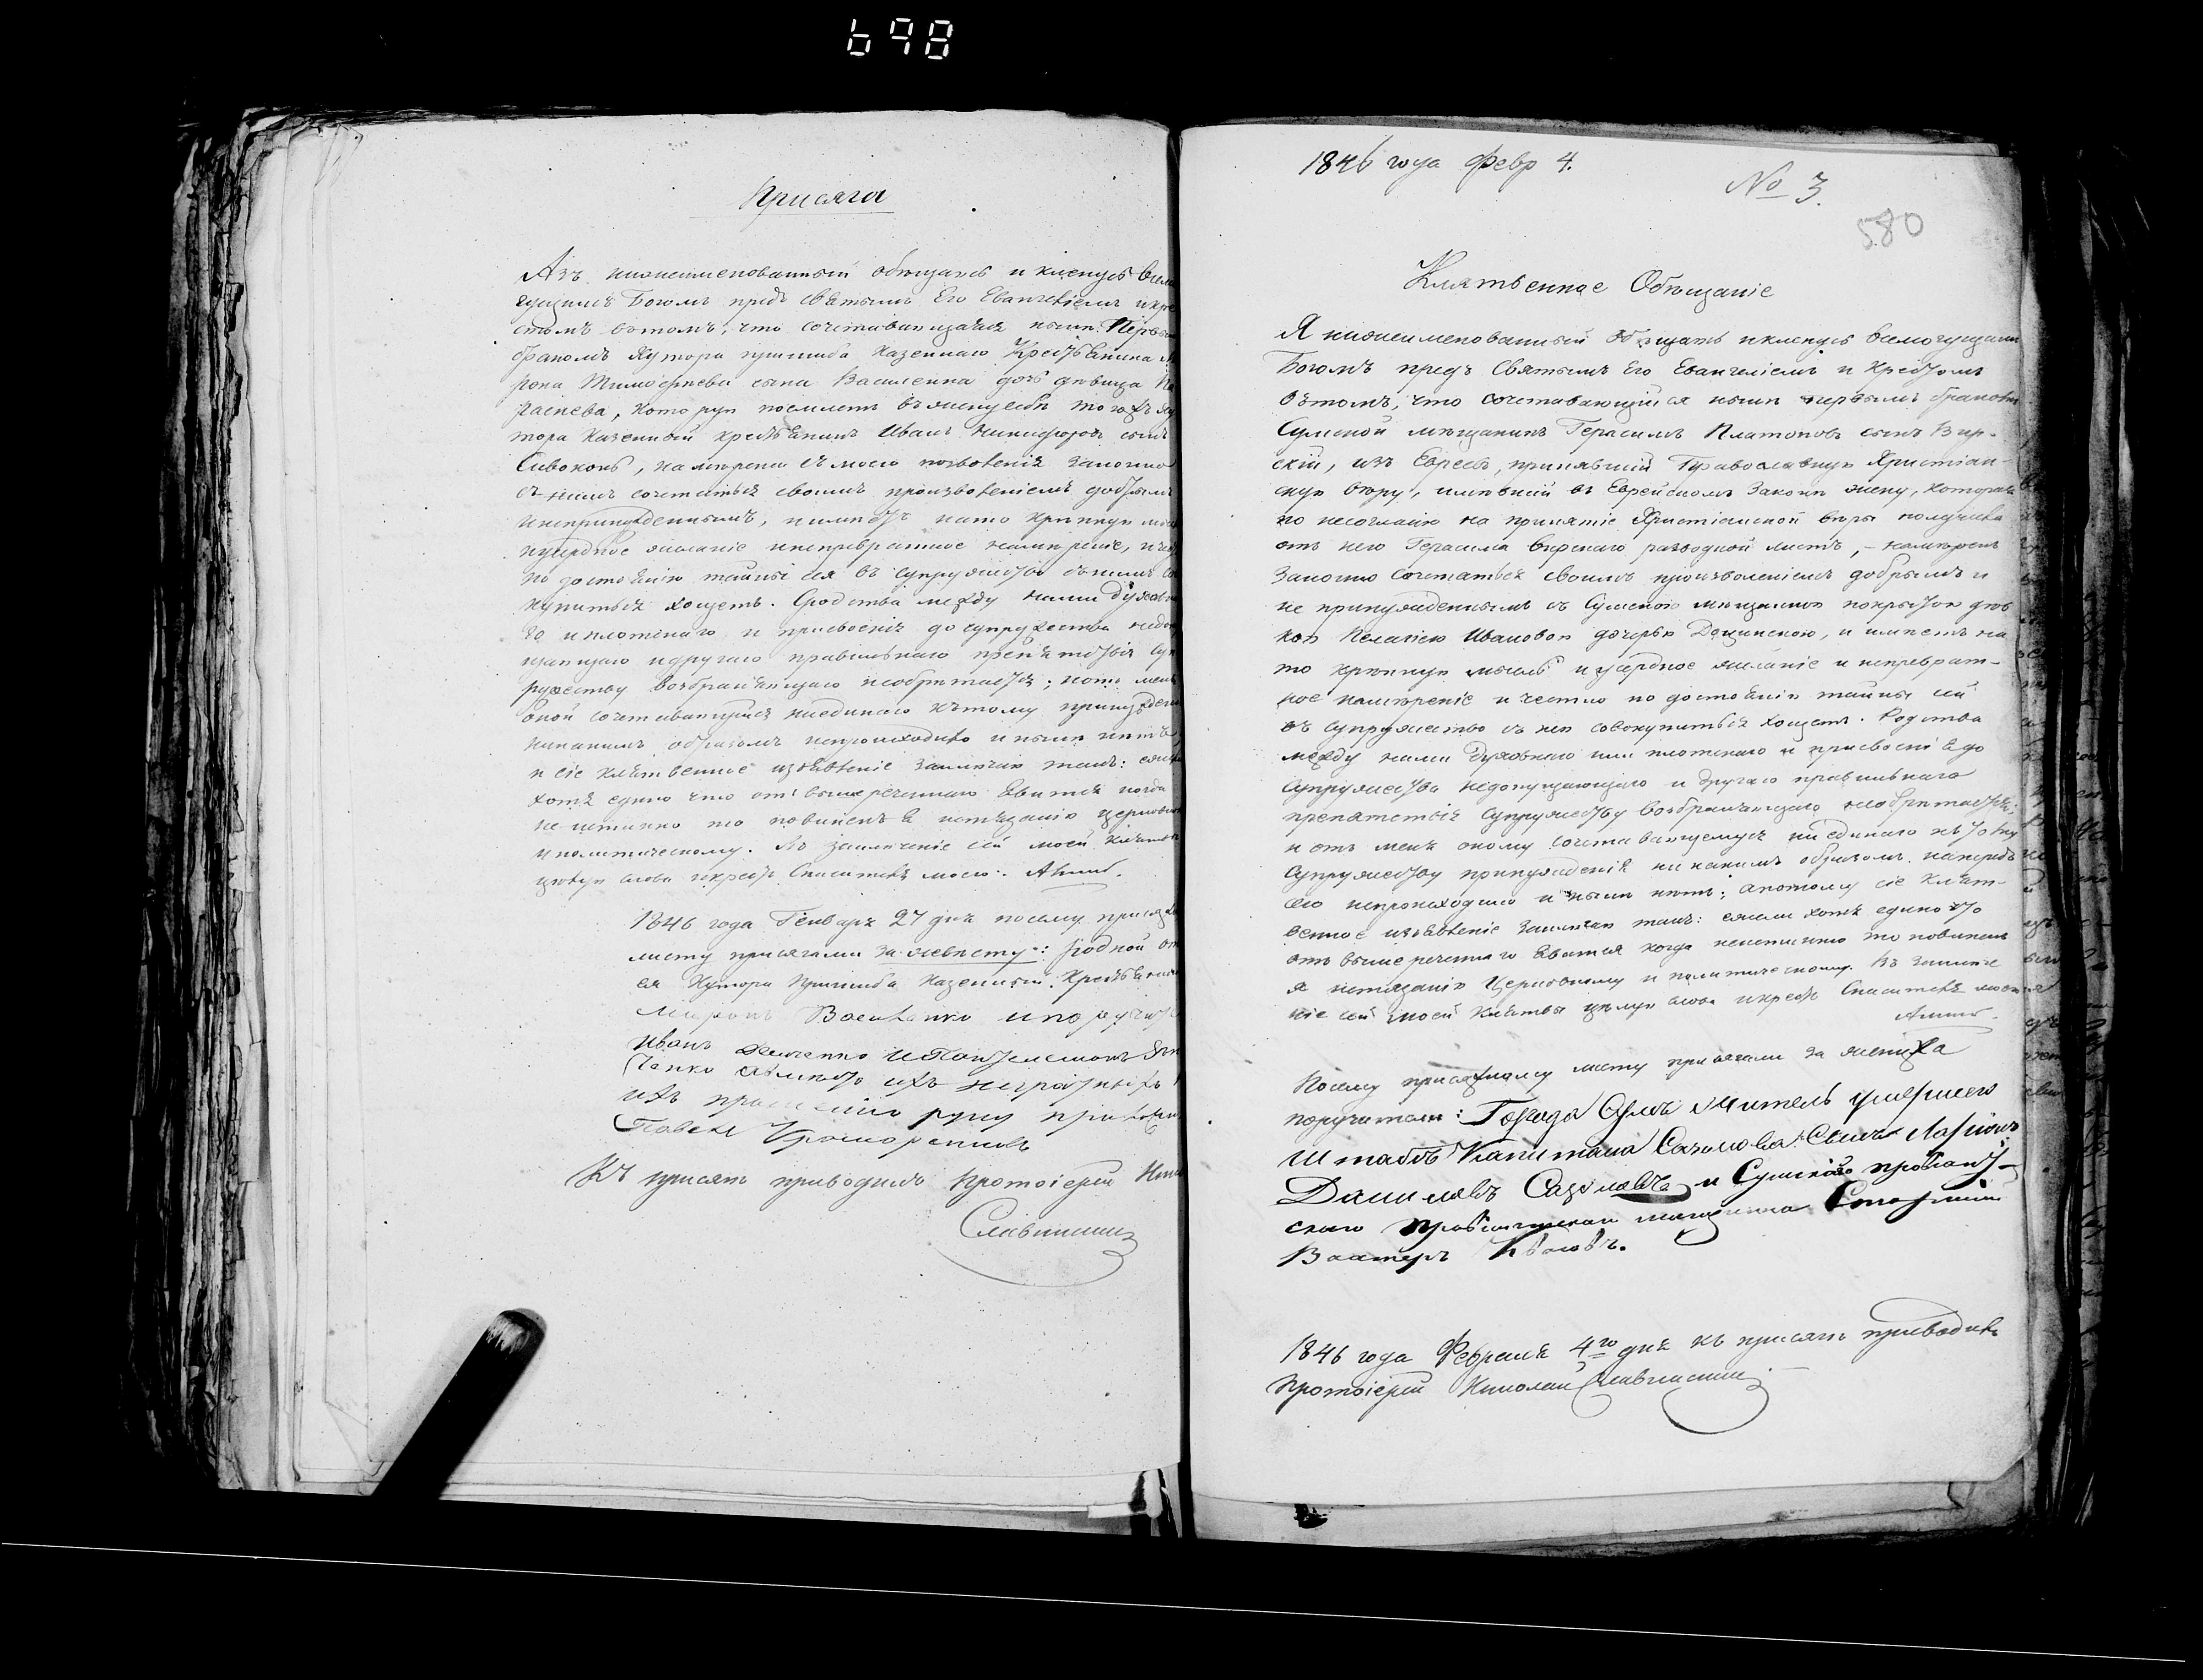 698
Присяга
Азъ нижеименованный обещаюсь и кленусь Всемо
гущимъ Богомъ предъ святымъ Его Евангеліемъ и кре
стомъ въ томъ, что сочетавающаяся ныне Первымъ
бракомъ Хутора Пришиба Казеннаго Крестьянина Ми
рона Тимофеева сына Василенка дочь девица Па
раскева, которую поемлетъ въ жену себе того жъ ху
тора Казенный крестьянинъ Иванъ Никифоровъ сынъ
Сивоконь, намерена съ моего позволенія законно
съ нимъ сочетаться своимъ произволеніемъ добрымъ
и непринужденнымъ, и имеетъ на то крепкую мысль
и усердное желаніе и непревратное намереніе, и че
по достоянію тайны сея въ супружество съ нимъ сово
купиться хощетъ. Сродства между ними духовна
го и плотскаго и присвоенія до супружества недопу
щающаго и другаго правильнаго препятствія суп
ружеству возбраняющаго необретается; и отъ меня
оной сочетавающейся ниединаго къ тому принужденія
никакимъ образомъ непроисходило и ныне нетъ,
и сіе клятвенное изъявленіе заключаю такъ: ежели
хотя едино что отъ вышереченнаго явится когда
не истинно то повиненъ я истязанію церковному
и политическому. Въ заключеніе сей моей клятвы
целую слова и крестъ Спасителя моего. Аминь.
1846 года Генваря 27 дня по сему присяжному
листу присягали за невесту: родной от
ея Хутора Пришиба Казенный Крестьянинъ
Миронъ Василенко и поручит
Иванъ
их неграмотныхъ
ихъ прошенію руку приложилъ
Павелъ
Къ присяге приводилъ Протоіерей Нико
Славинскій
1846 года Февр 4.
№ 3.
580
Клятвенное Обещаніе
Я нижеименованный обещаюсь и кленусь всемогущимъ
Богомъ предъ Святымъ Его Евангеліемъ и Крестомъ
въ томъ, что сочетавающійся ныне первымъ бракомъ
Сумской мещанинъ Герасимъ Платоновъ сынъ Вир-
скій, изъ Евреевъ, принявшій Православную Христіан-
скую веру, имевшій въ Еврейскомъ Законе жену, которая
по несогласію на принятіе Христіанской веры получила
отъ него Герасима Вирскаго разводной листъ, – намеренъ
законно сочетаться своимъ произволеніемъ добрымъ и
не принужденнымъ съ Сумскою мещанкою девъ
кою Пелагіею Ивановою дочерью Доцинскою, и имеетъ на
то крепкую мысль и усердное желаніе и непреврат-
ное намереніе и честно по достоянію тайны сей
въ супружество съ нею совокупиться хощетъ. Родства
между ними духовнаго или плотскаго и присвоенія до
супружества недопущающаго и другаго правильнаго
препятствія супружеству возбраняющаго необретается;
и отъ меня оному сочетавающемуся ни единаго къ тому
супружеству принужденія ни какимъ образомъ напередъ
сего непроисходило и ныне нетъ; а потому сіе клят-
венное изъявленіе заключаю такъ: ежели хотя едино что
отъ вышереченнаго явится когда неистинно то повиненъ
я истязанію Церковному и политическому. Въ заключе
ніе сей моей клятвы целую слова и крестъ Спасителя моего
Аминь.
По сему присяжному листу присягали за жениха
поручители: Города Сумъ житель умершаго
штабсъ Капитана Сазонова Сынъ Ларіонъ
Даниловъ Сазоновъ и Сумскаго провіант-
скаго магазина Старшій
Вахтеръ Квасовъ.
1846 года Февраля 4го дня къ присяге приводилъ
Протоіерей Николай Славинскій